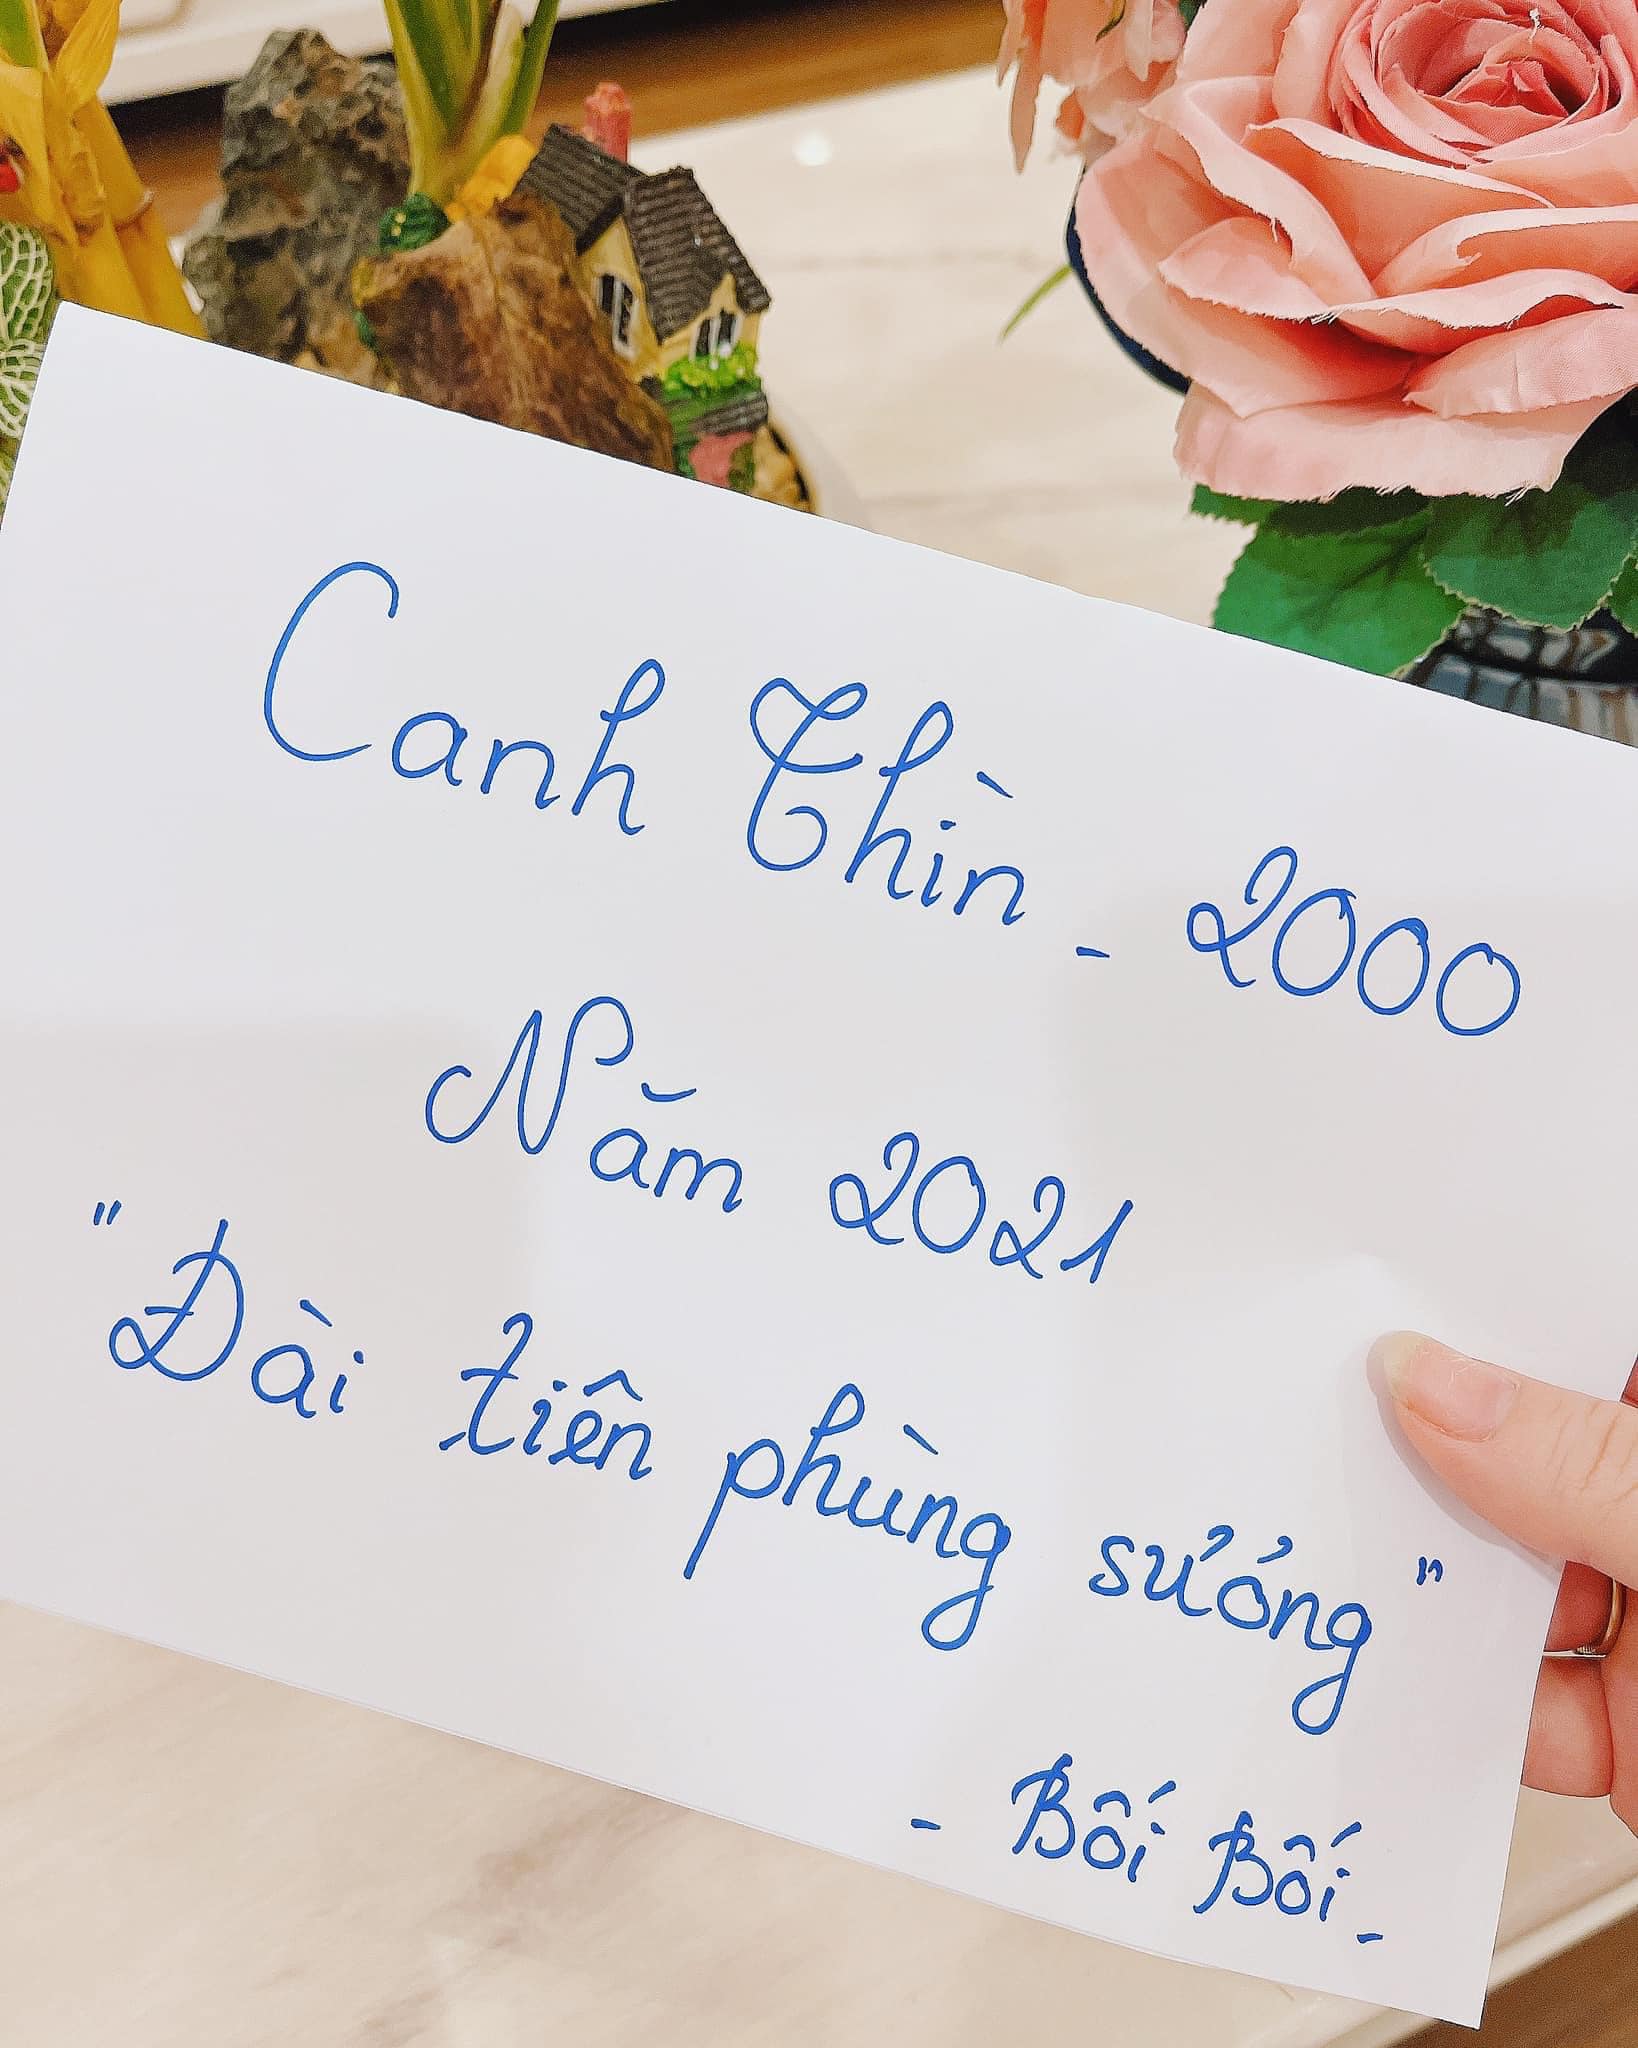 Canh Thìn - 2000
Năm 2021
"Đài tiên phùng sướng"
- Bối Bối -